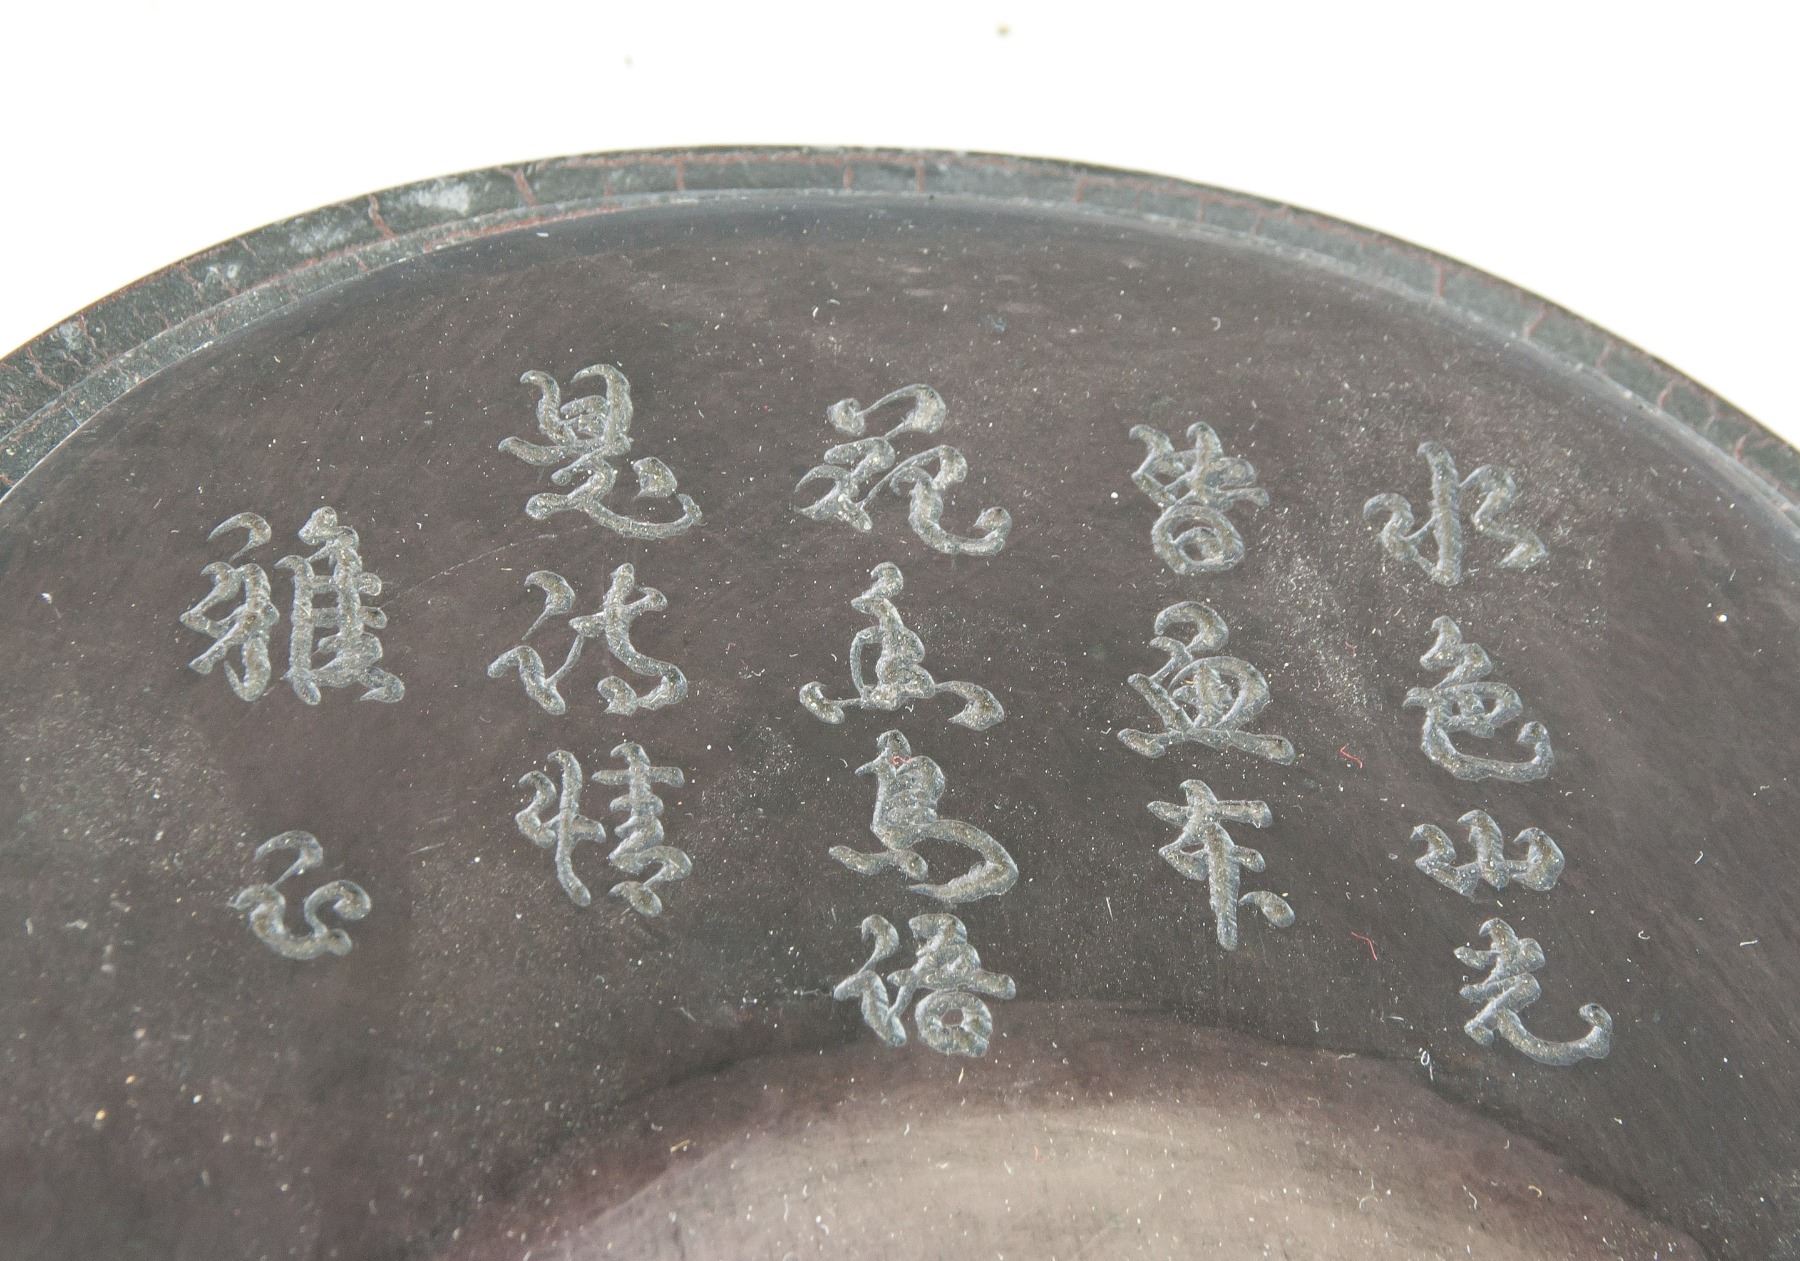 水色山光
皆畫本
花香鳥語
是詩情
雅正